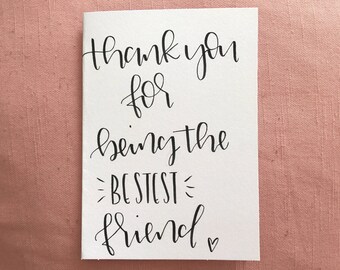 thank you
for
being the
BESTEST
friend